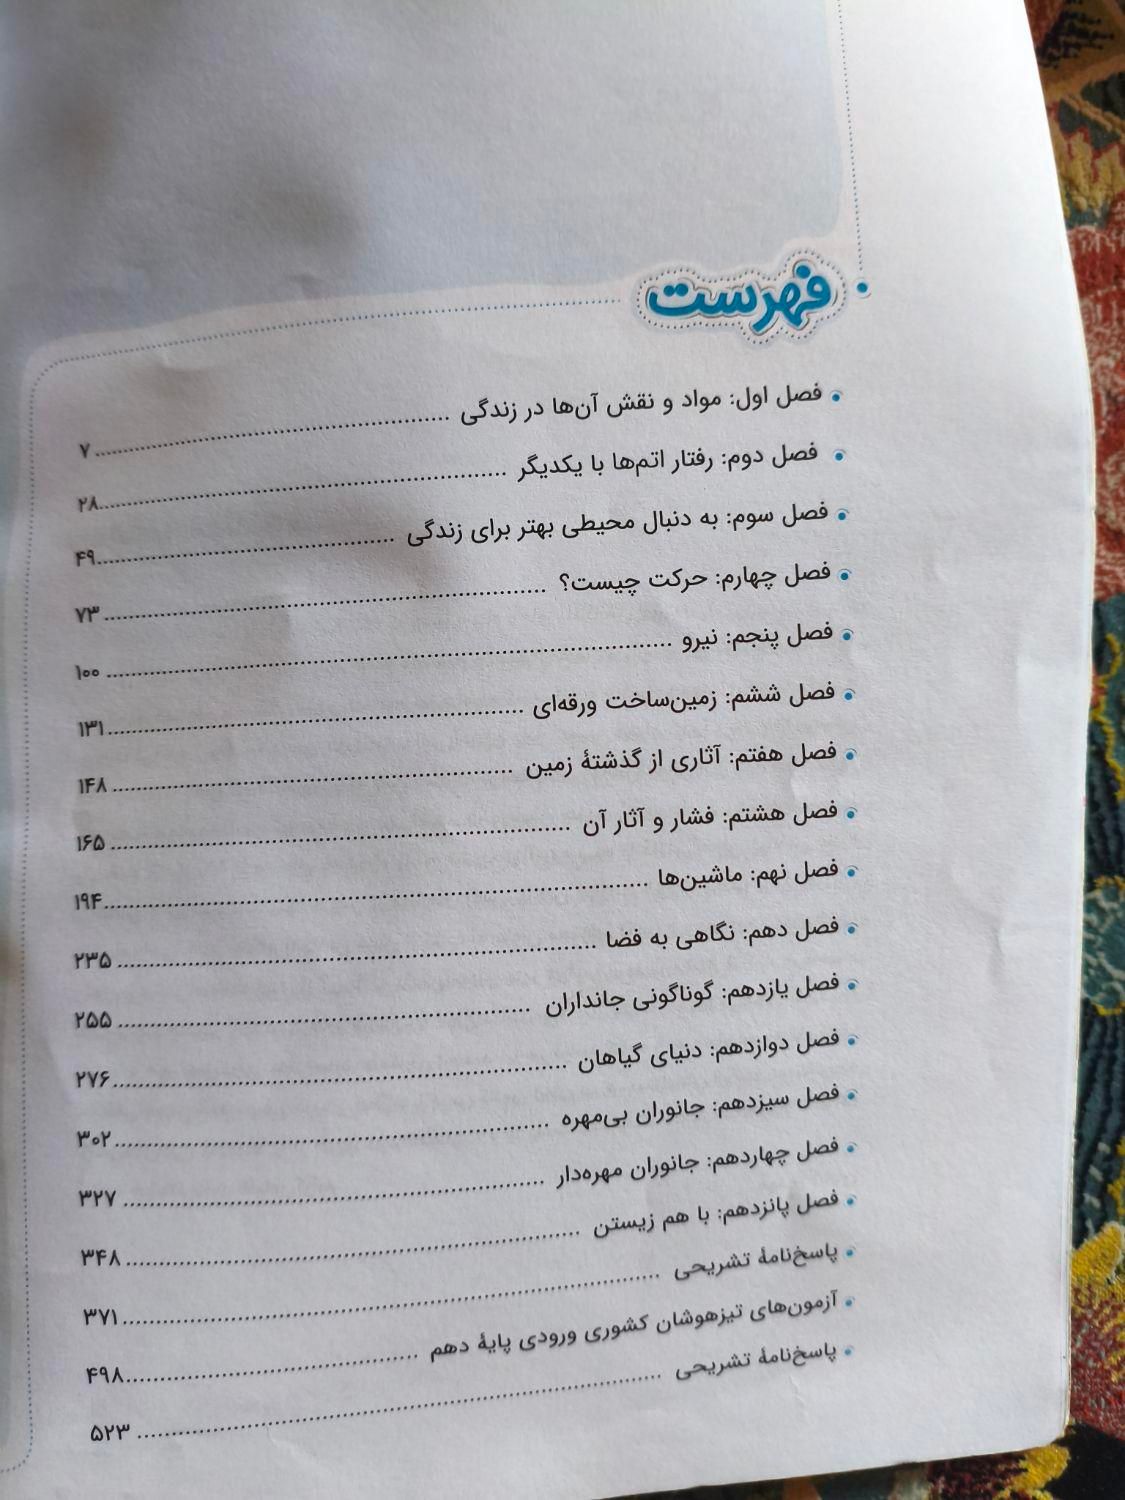 فهرست
فصل اول: مواد و نقش آن‌ها در زندگی ........ ۷
فصل دوم: رفتار اتم‌ها با یکدیگر ........ ۲۸
فصل سوم: به دنبال محیطی بهتر برای زندگی ........ ۴۹
فصل چهارم: حرکت چیست؟ ........ ۷۳
فصل پنجم: نیرو ........ ۱۰۰
فصل ششم: زمین‌ساخت ورقه‌ای ........ ۱۳۱
فصل هفتم: آثاری از گذشتهٔ زمین ........ ۱۴۸
فصل هشتم: فشار و آثار آن ........ ۱۶۵
فصل نهم: ماشین‌ها ........ ۱۹۴
فصل دهم: نگاهی به فضا ........ ۲۳۵
فصل یازدهم: گوناگونی جانداران ........ ۲۵۵
فصل دوازدهم: دنیای گیاهان ........ ۲۷۶
فصل سیزدهم: جانوران بی‌مهره ........ ۳۰۲
فصل چهاردهم: جانوران مهره‌دار ........ ۳۲۷
فصل پانزدهم: با هم زیستن ........ ۳۴۸
پاسخ‌نامهٔ تشریحی ........ ۳۷۱
آزمون‌های تیزهوشان کشوری ورودی پایهٔ دهم ........ ۴۹۸
پاسخ‌نامهٔ تشریحی ........ ۵۲۳